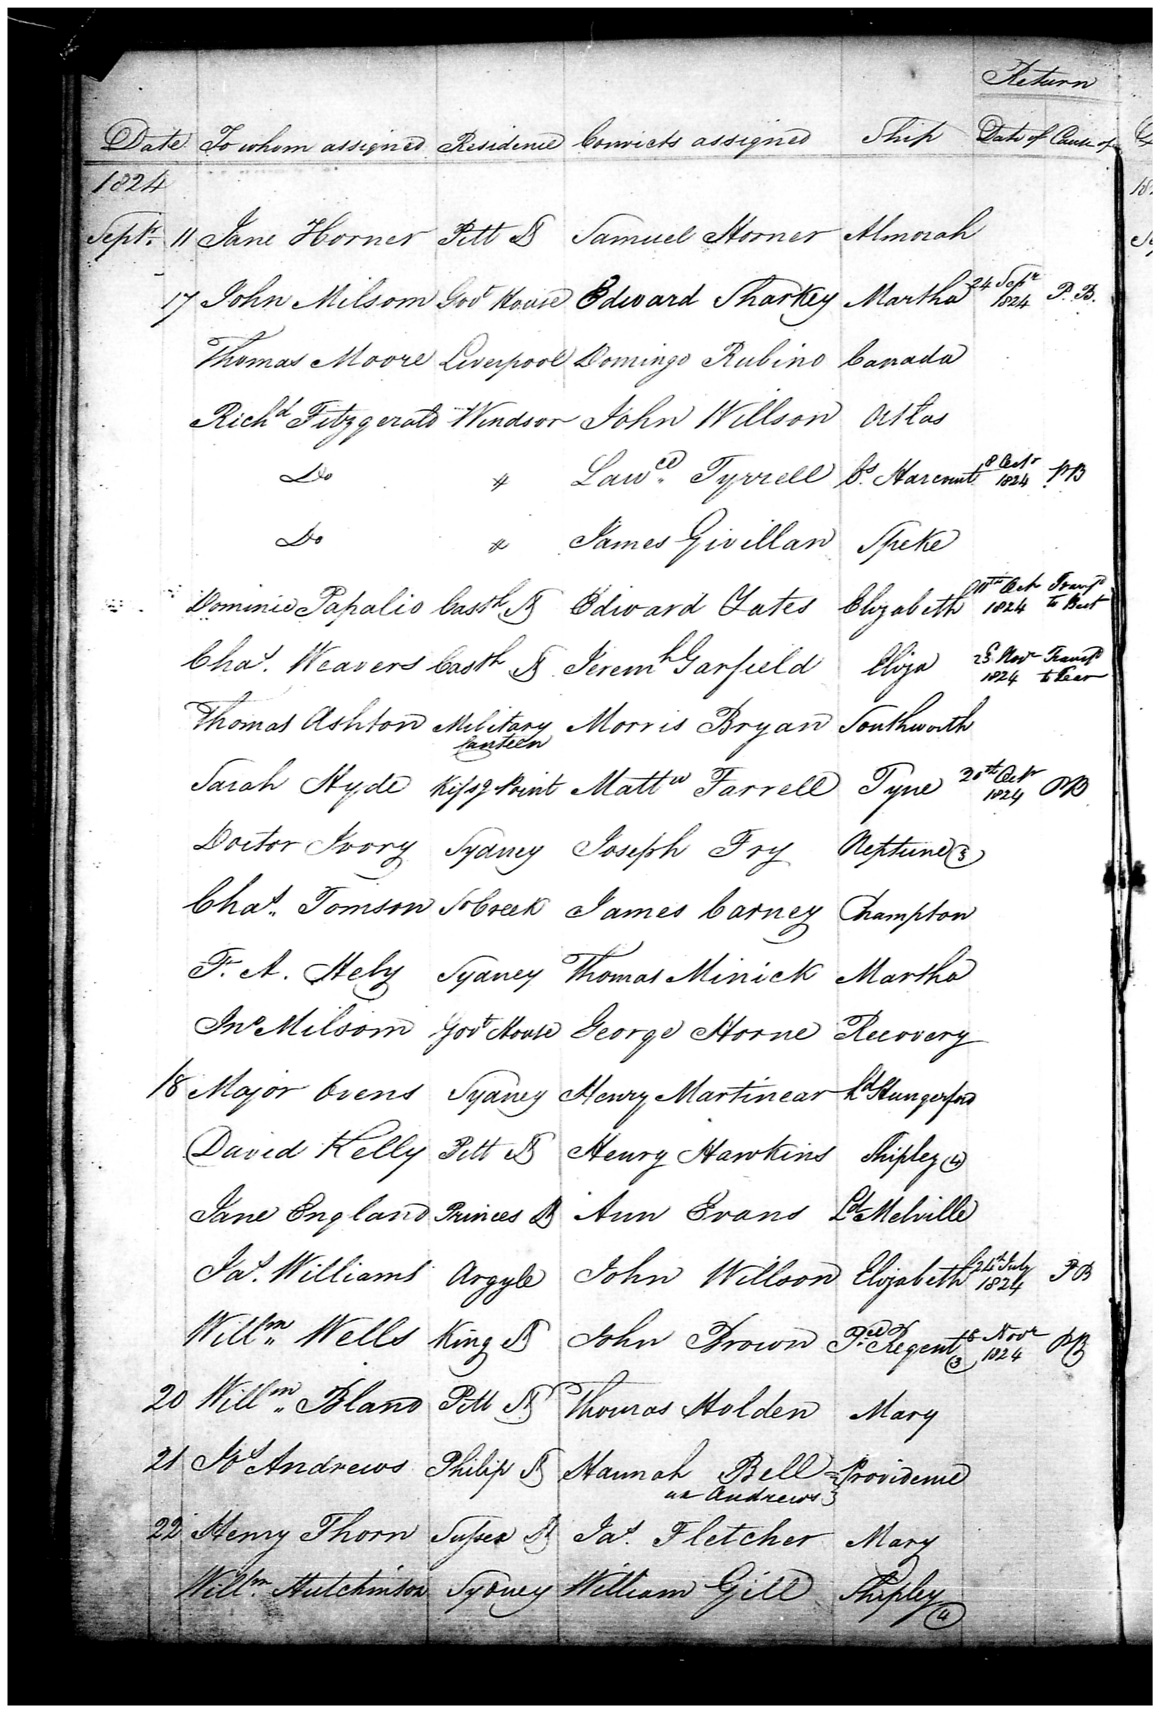 Return
Date To whom assigned Residence Convicts assigned Ship Date of Cause of
1824
Septr. 11 Jane Horner Pitt St Samuel Horner Almorah
17 John Milsom Govt House Edward Sharkey Martha 24 Septr 1824 P.B.
Thomas Moore Liverpool Domingo Rubino Canada
Richd Fitzgerald Windsor John Willson Atlas
Do " Lawce. Tyrrell Cs. Harcourt 8 Octr 1824 P.B
Do " James Givillan Speke
Dominic Papalio Castle St Edward Yates Elizabeth 11th Octr 1824 Transfd to
Chas. Weavers Castle St Jeremh Garfield Eliza 23 Novr 1824 Transfd to
Thomas Ashton Military Canteen Morris Bryan Southworth
Sarah Hyde Kissg Point Mattw Farrell Tyne 20th Octr 1824 PB
Doctor Ivory Sydney Joseph Fry Neptune (3)
Chas. Tomson So Creek James Carney Champton
F. A. Hely Sydney Thomas Minick Martha
Jno Milsom Govt House George Horne Recovery
18 Major Ovens Sydney Henry Martinear Ld Hungerford
David Kelly Pitt St Henry Hawkins Shipley (4)
Jane England Princes St Ann Evans Ld Melville
Jas. Williams Argyle John Willson Elizabeth 24th July 1824 PB
Willm. Wells King St John Brown Pce Regent (3) 18 Novr 1824 PB
20 Willm. Bland Pitt St Thomas Holden Mary
21 Js Andrews Philip St Hannah Bell or Andrews Providence
22 Henry Thorn Sussex St Jas. Fletcher Mary
Willm. Hutchinson Sydney William Gill Shipley (4)